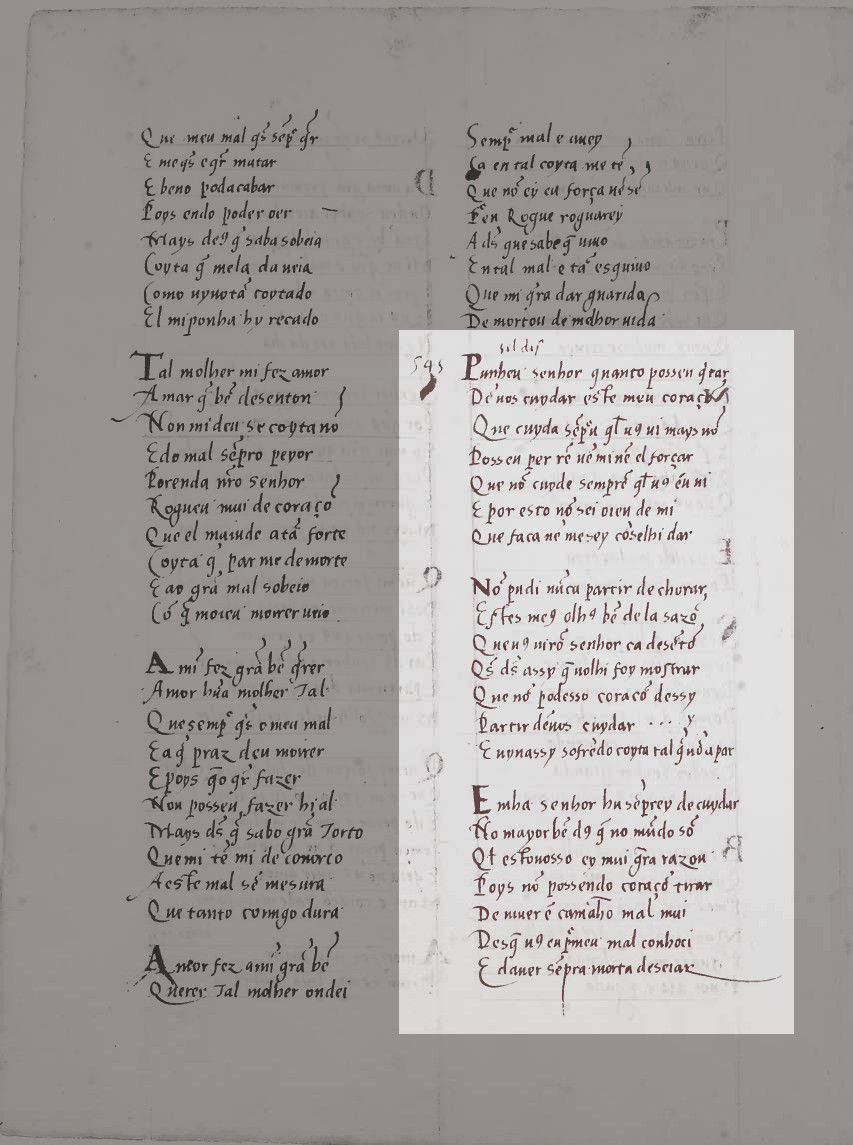 Que meu mal q̃s sẽp̃ q̃r
E me q̃s e q̃r matar
E beno podacabar
Poys endo poder oer
Mays de9 q̃ sab a sobeia
Coyta q̃ mela da ueia
Como uyuo tã coytado
El mi ponha hy recado
Tal molher mi fez amor
Amar q̃ bẽ desenton
Non mi deu se coyta nõ
E do mal sẽpro peyor
Porend a nr̃o senhor
Rogueu mui de coraçõ
Que el maiude a tã forte
Coyta q̃ par me de morte
E ao grã mal sobeio
Cõ q̃ moieu morrer ueio
A mi fez grã bẽ q̃rer
Amor hũa molher Tal
Que semp̃ q̃s o meu mal
E a q̃ praz deu moirer
E poys q̃ o q̃r fazer
Non posseu fazer hi al
Mays ds̃ q̃ sabo grã Torto
Que mi tẽ mi de conorto
A este mal sẽ mesura
Que tanto comigo dura
Amor fez a mi grã bẽ
Querer Tal molher ondei
Semp̃ mal e auey
Ca en tal coyta me tẽ
Que nõ ey eu força nẽ sẽ
Pen Rogue roguarey
A ds̃ que sabe q̃ uiuo
En tal mal e tã esquiuo
Que mi q̃ra dar guarida
De mortou de melhor uida
545
Punheu senhor quanto posseu q̃tar
Deuos cuydar este meu coraçõ
Que cuyda sẽpr̃u ql̃ u9 ui mays nõ
Posseu per rẽ nẽ mi nẽ el forçar
Que nõ cuyde sempr̃ ql̃ u9 eu ui
E por esto nõ sei oieu de mi
Que faca nẽ me sey cõselhi dar
Nõ pudi nũca partir de chorar
Estes me9 olh9 bẽ dela sazõ
Que u9 uirõ senhor ca desentõ
Q̃s ds̃ assy q̃ uolhi foy mostrar
Que nõ podesso coraçõ dessy
Partir deuos cuydar . . . y
E uyuassy sofrẽdo coyta tal q̃ nõ á par
E mha senhor hu sẽprey de cuydar
No mayor bẽ d9 q̃ no mũdo sõ
Ql̃ est o uosso ey mui grã razon
Poys nõ possendo coraçõ tirar
De uiuer ẽ camãho mal uiui
Desq̃ u9 eu p̃ meu mal conhoci
E dauer sẽpra morta deseiar